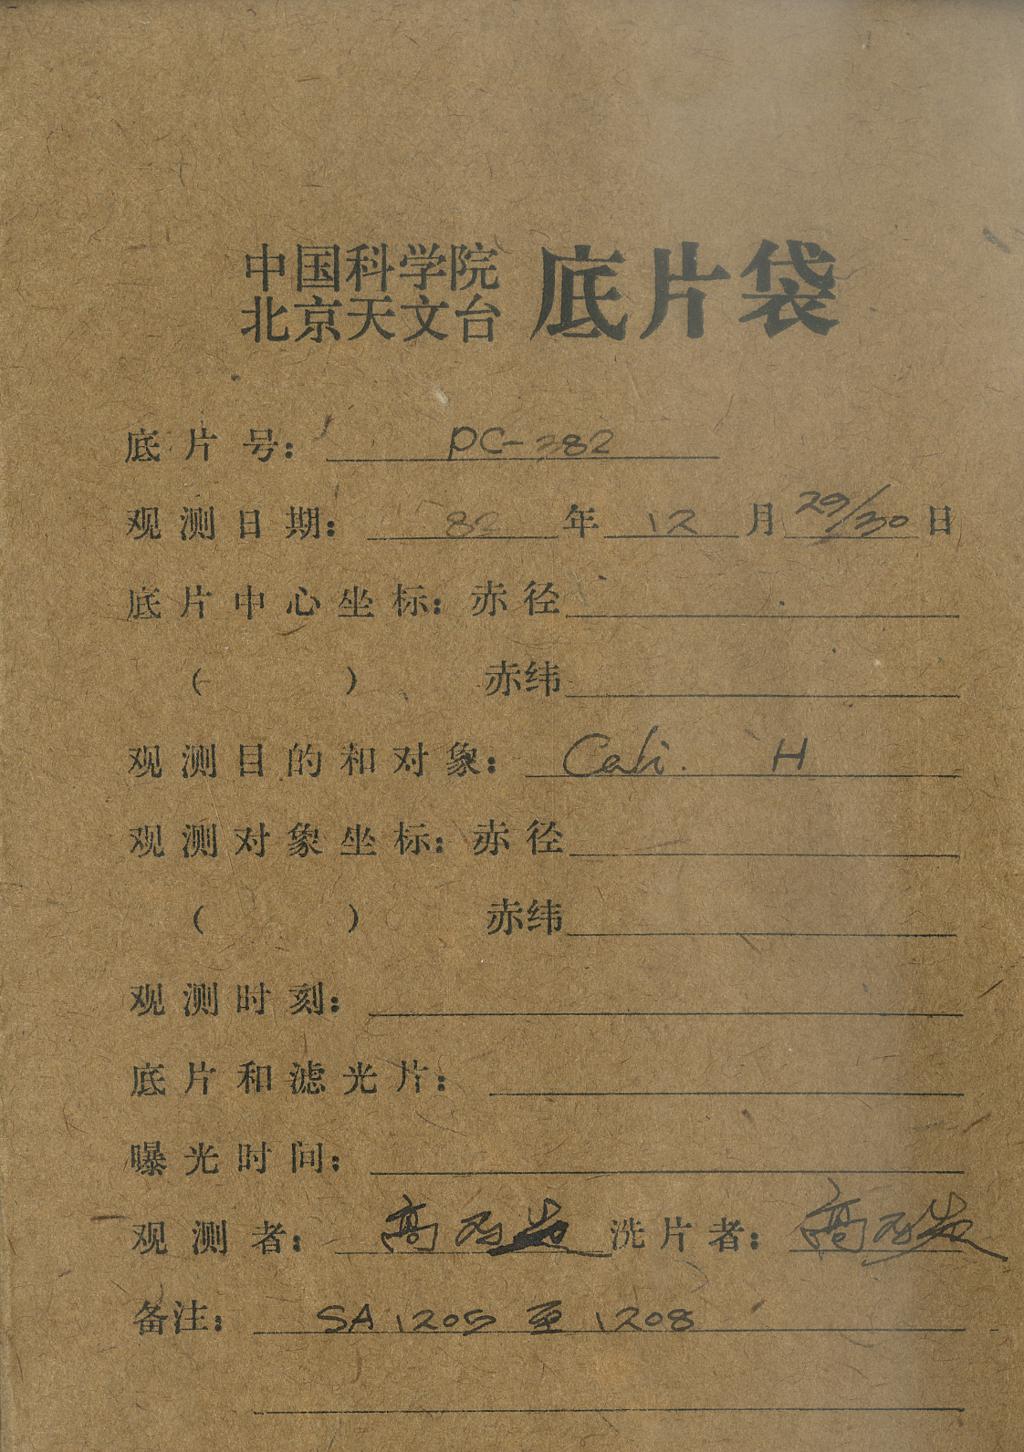 中国科学院
北京天文台 底片袋
底片号: PC-382
观测日期: 82 年 12 月 29/30 日
底片中心坐标: 赤径
( ) 赤纬
观测目的和对象: Cali. H
观测对象坐标: 赤径
( ) 赤纬
观测时刻:
底片和滤光片:
曝光时间:
观测者: 高 洗片者: 高
备注: SA 1205 至 1208